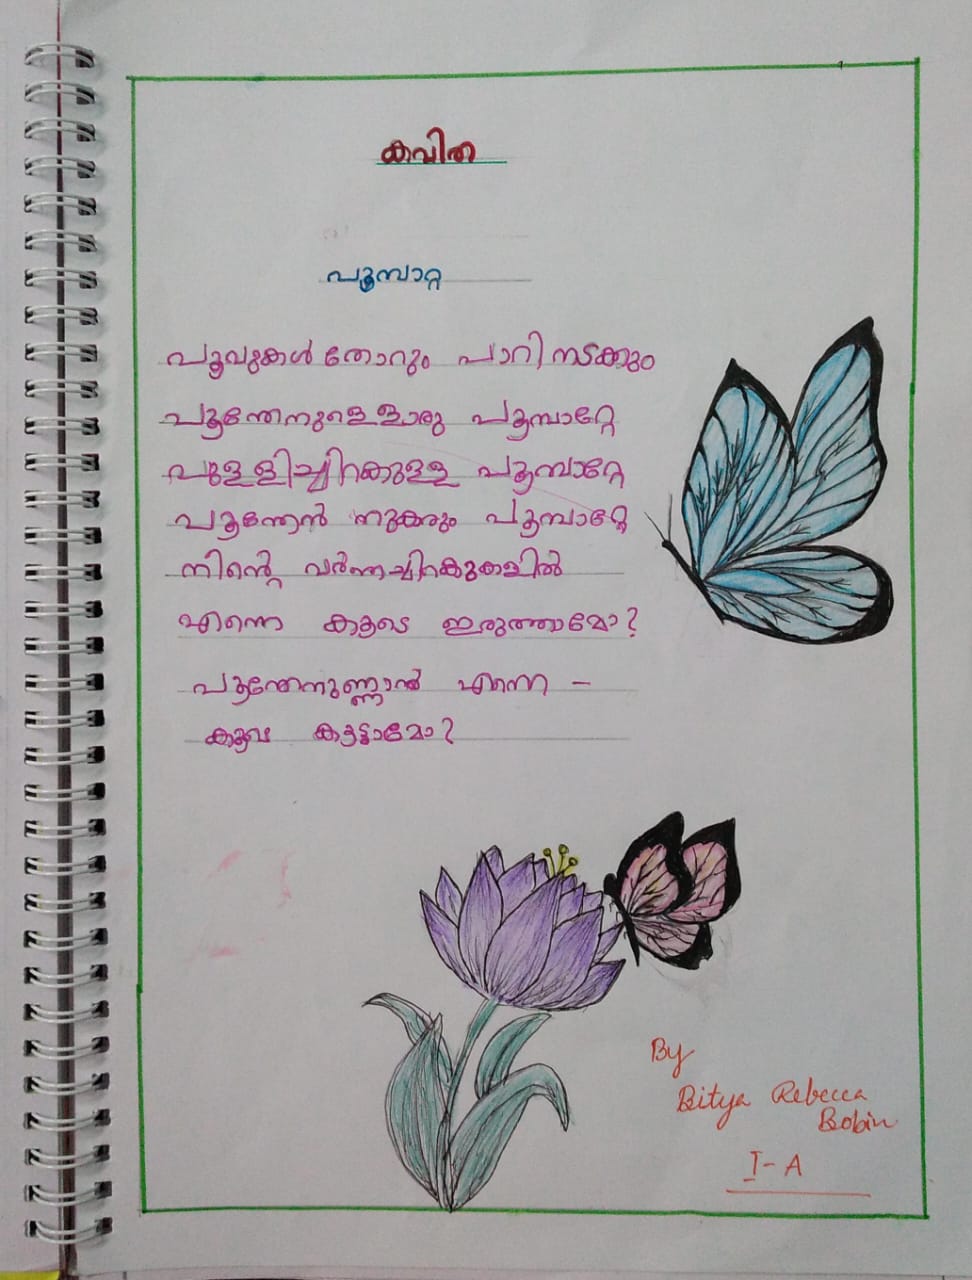 കവിത
പൂമ്പാറ്റ
പൂവുകൾ തോറും പാറി നടക്കും
പൂന്തേനുള്ളൊരു പൂമ്പാറ്റേ
പുള്ളിച്ചിറകുള്ള പൂമ്പാറ്റേ
പൂന്തേൻ നുകരും പൂമ്പാറ്റേ
നിന്റെ വർണ്ണച്ചിറകുകളിൽ
എന്നെ കൂടെ ഇരുത്താമോ?
പൂന്തേനുണ്ണാൻ എന്നെ –
കൂടെ കൂട്ടാമോ?
By
Bitya Rebecca
Bobin
I - A